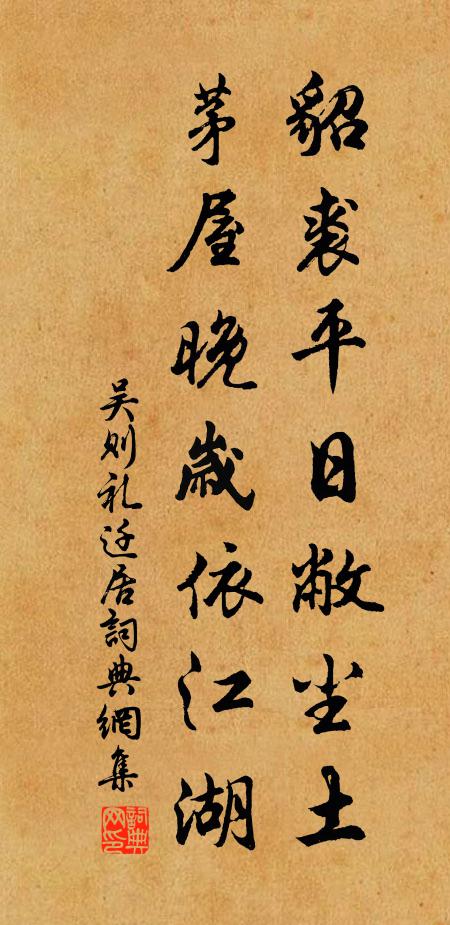 貂裘平日敝尘土
茅屋晚岁依江湖
吴则礼迁居詞典網集
詞典网印